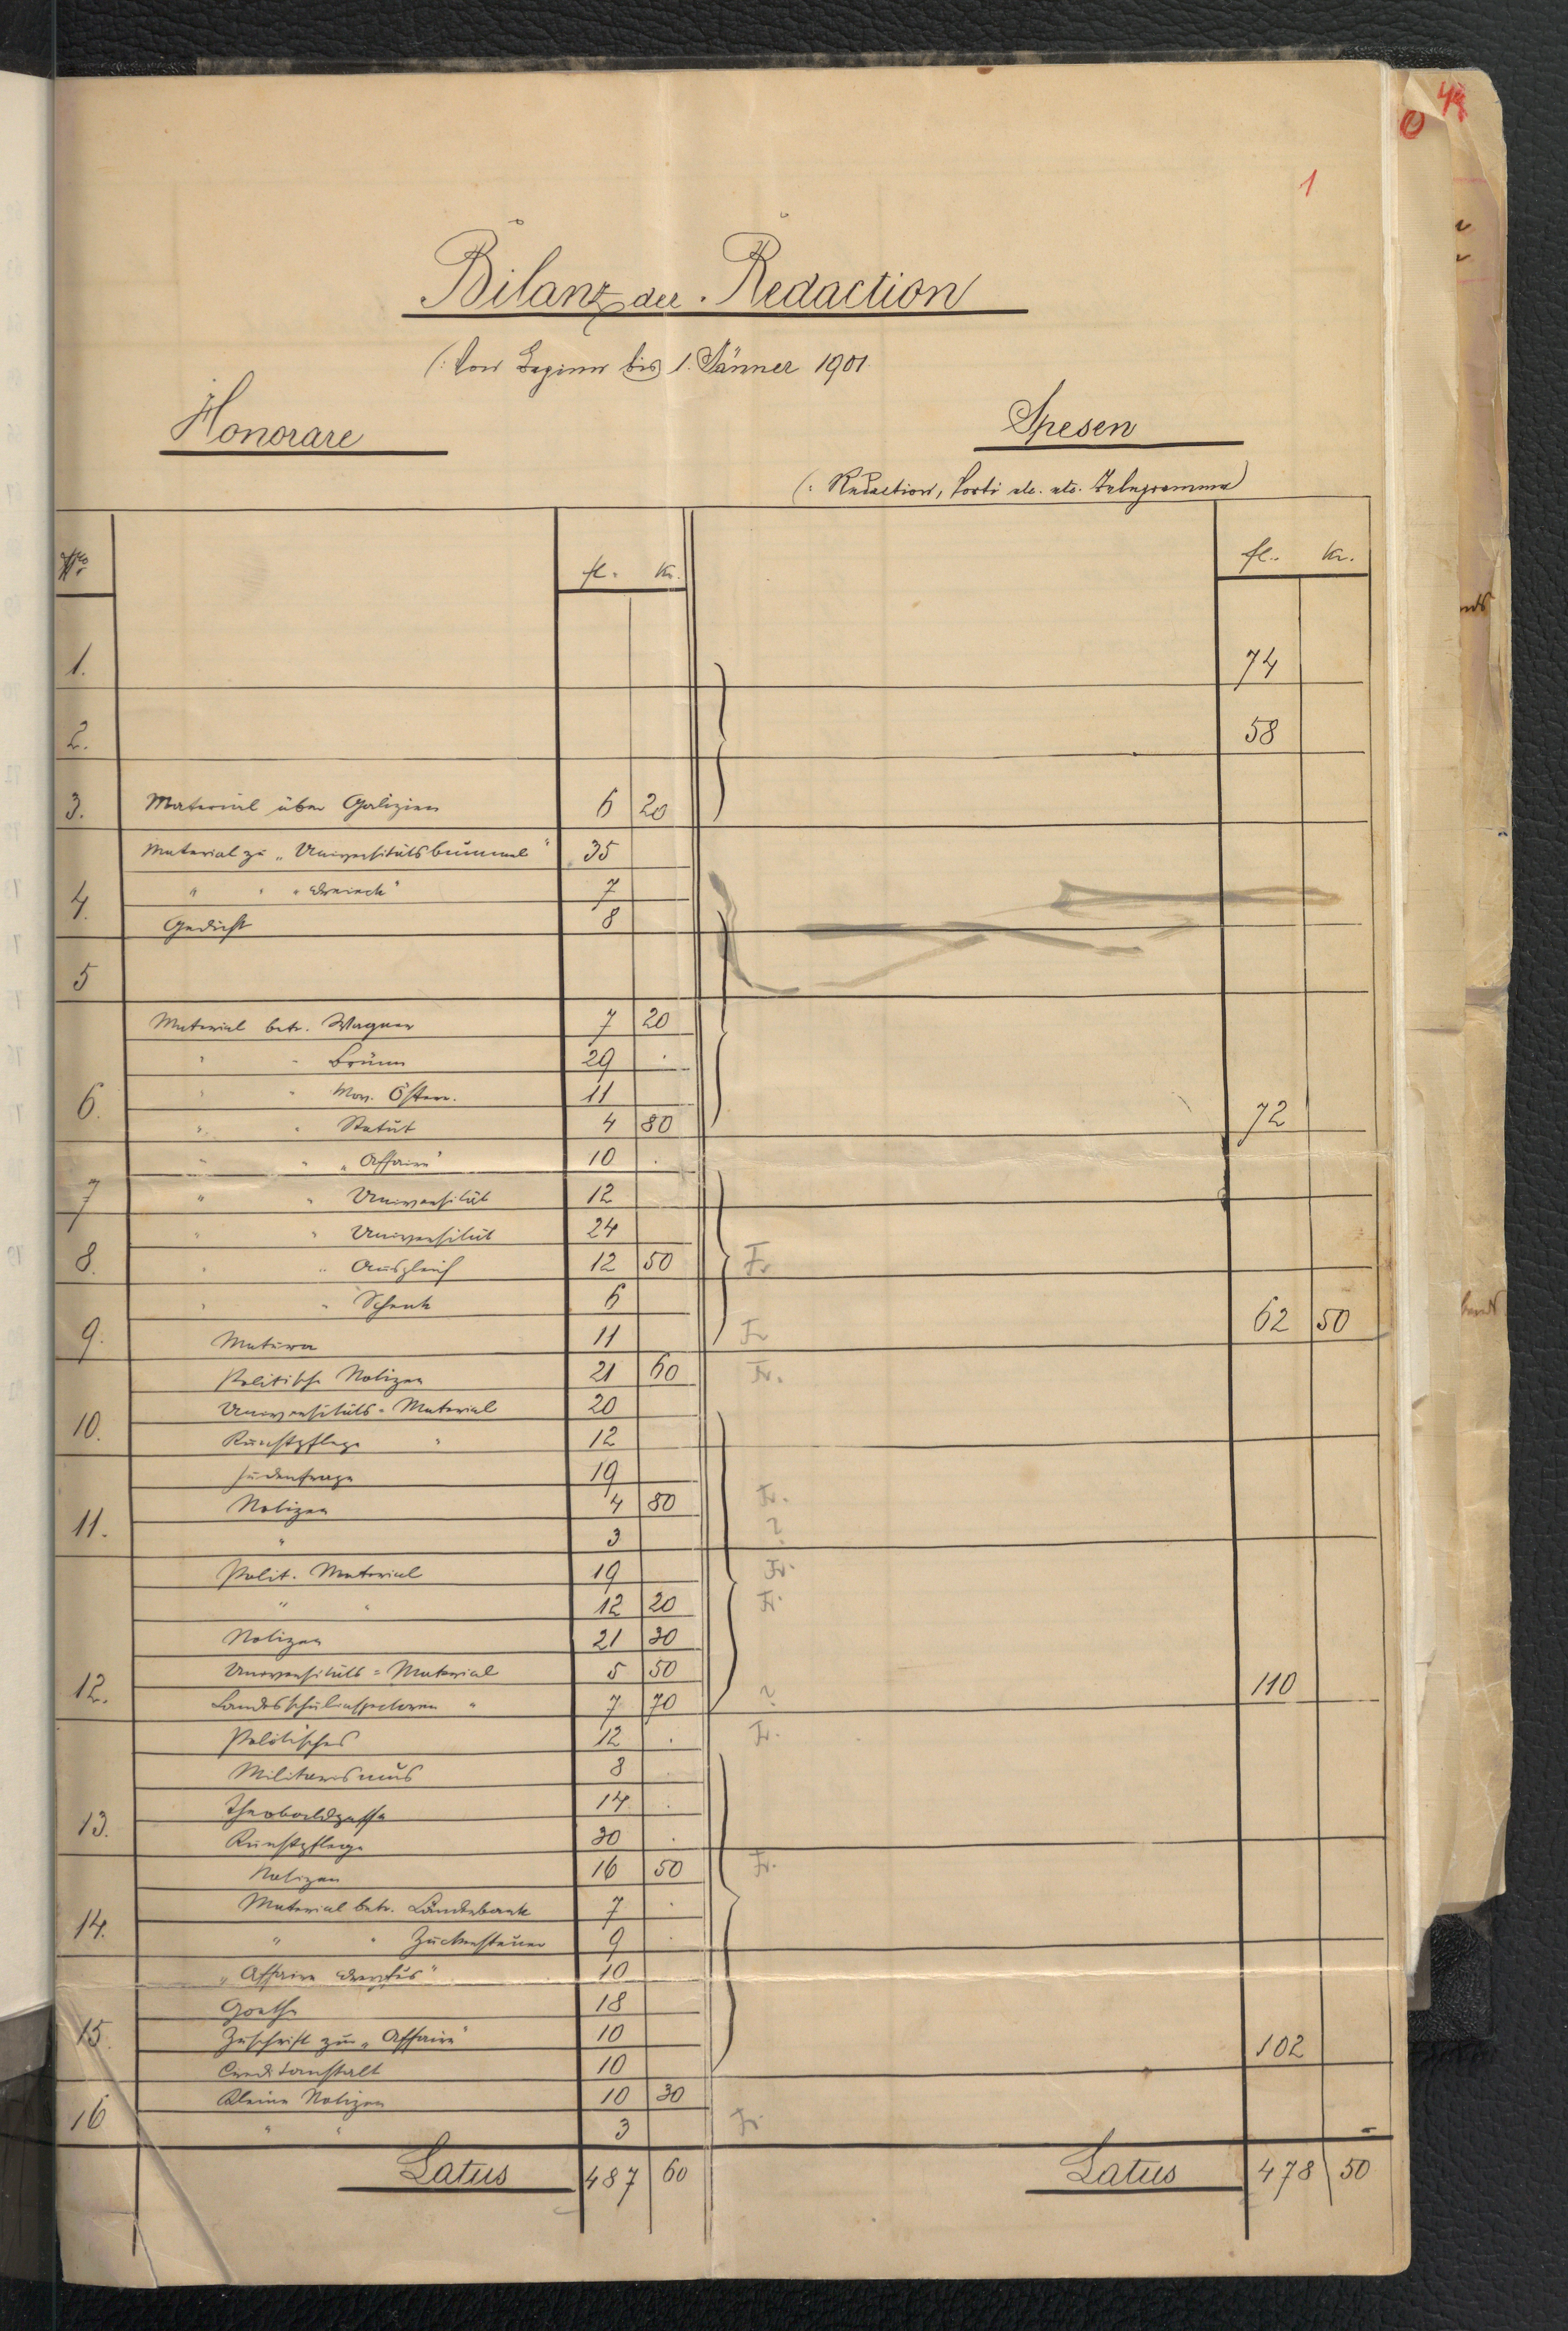 48
0
1
Bilanz der Redaction
(: Von Beginn bis 1. Jänner 1901.
Honorare
Spesen
(: Redaction, Porti etc. etc. Telegramme)
No. fl. Kr. fl. Kr.
1. 74
2. 58
3. Material über Galizien 6 20
Material zu „Universitätsbummel" 35
" " " 7
4. Gedicht 8
5
Material betr. Wagner 7 20
" " Brünn 29 .
" " Mon. Österr. 11
6. " " Statut 4 80 72
" " „Affaire" 10 .
7 " " Universität 12
" " Universität 24
8. " " Ausgleich 12 50 Fr
" " Schenk 6
9. Matura 11 Fr 62 50
Politische Notizen 21 60 Fr.
Universitäts-Material 20
10. Kunstpflege " 12
Judenfrage 19
Notizen 4 80 Fr.
11. " 3 ?
Polit. Material 19 Fr.
" " 12 20 Fr.
Notizen 21 30
Universitäts-Material 5 50
12. Landesschulinspectoren " 7 70 ? 110
Politisches 12 . Fr.
Militarismus 8 .
Theobaldgasse 14 .
13. Kunstpflege 30 .
Notizen 16 50 Fr.
Material betr. Länderbank 7 .
14. " " Zuckersteuer 9 .
„Affaire Dreyfus" 10
Goethe 18
15. Zuschrift zur „Affaire" 10 102
Creditanstalt 10
Kleine Notizen 10 30
16 " " 3 Fr. -
Latus 487 60 Latus 478 50